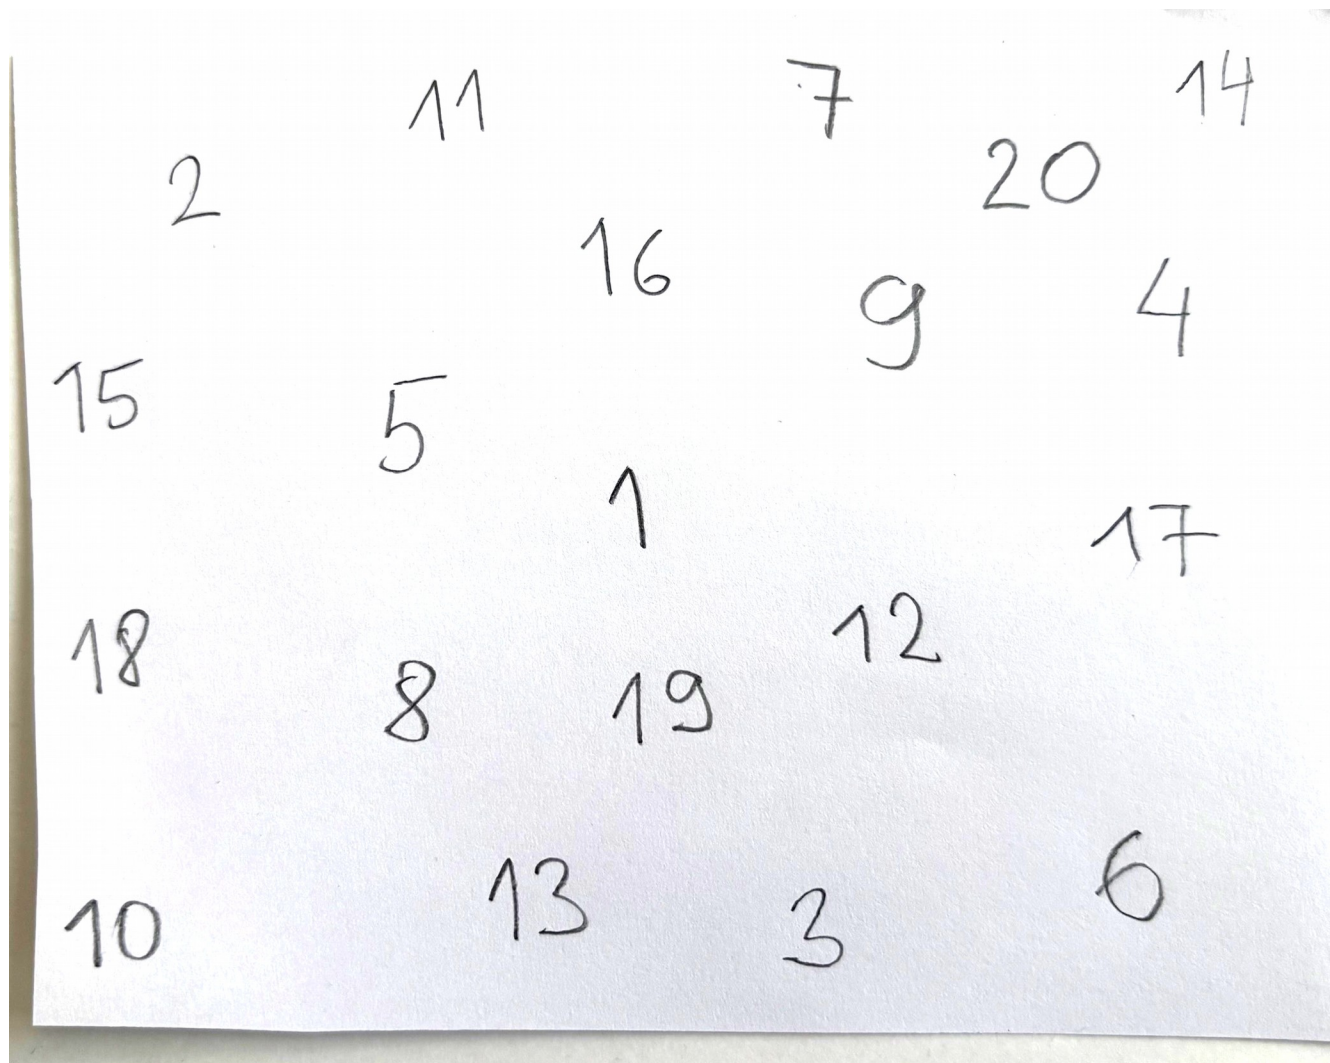 11 7 14
2 20
16
9 4
15 5
1
17
18 12
8 19
13 6
10 3